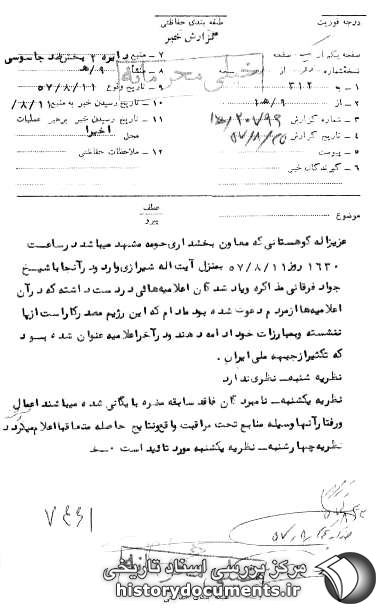 درجه فوریت
طبقه بندی حفاظتی
گزارش خبر
خیلی محرمانه
صفحه یکم از یک صفحه
نسخه شماره از نسخه
۱ - به ۳۱۲
۲ - از ۹/ه۱
۳ - شماره گزارش
۴ - تاریخ گزارش
۵ - پیوست
۶ - گیرندگان خبر
۷ - منبع دایره ۲ بخش ضد جاسوسی
۸ - منشأ ۹/ه
۹ - تاریخ وقوع ۵۷/۸/۱۱
۱۰ - تاریخ رسیدن خبر به منبع ۱۱/۸/
۱۱ - تاریخ رسیدن خبر برهبر عملیات اخیرا
محل
۱۲ - ملاحظات حفاظتی
موضوع
عطف
پیرو
عزیزاله کوهستانی که معاون بخشداری حومه مشهد میباشد در ساعت
۱۶۳۰ روز ۵۷/۸/۱۱ بمنزل آیت اله شیرازی وارد و در آنجا با شیخ
جواد فرقانی مذاکره و یاد شدگان اعلامیه هائی در دست داشته که در آن
اعلامیه ها از مردم دعوت شده بود مادام که این رژیم مصدر کار است از پا
ننشسته و بمبارزات خود ادامه دهند و در آخر اعلامیه عنوان شده بود
که تکثیر از جبهه ملی ایران .
نظریه شنبه - نظری ندارد
نظریه یکشنبه - نامبردگان فاقد سابقه مضره بایگانی شده میباشند اعمال
و رفتار آنها وسیله منابع تحت مراقبت واقع و نتایج حاصله متعاقبا اعلام میگردد
نظریه چهارشنبه - نظریه یکشنبه مورد تائید است
مرکز بررسی اسناد تاریخی
historydocuments.ir